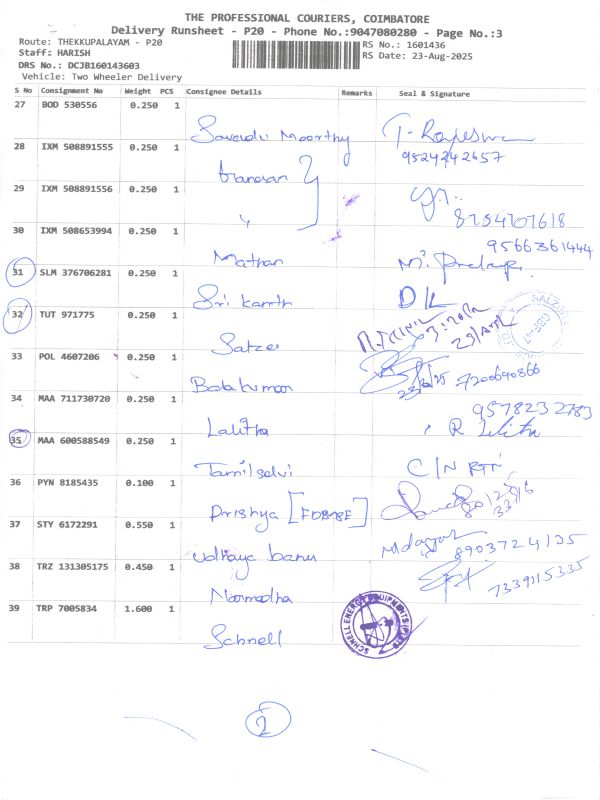 THE PROFESSIONAL COURIERS, COIMBATORE
Delivery Runsheet - P20 - Phone No.:9047080280 - Page No.:3
Route: THEKKUPALAYAM - P20
RS No.: 1601436
Staff: HARISH
RS Date: 23-Aug-2025
DRS No.: DCJB160143603
Vehicle: Two Wheeler Delivery
S No Consignment No Weight PCS Consignee Details Remarks Seal & Signature
27 BOD 530556 0.250 1
Moorthy
9524242657
28 IXM 508891555 0.250 1
29 IXM 508891556 0.250 1
8754707618
30 IXM 508653994 0.250 1
9566361444
Mathan
31 SLM 376706281 0.250 1
Sri kanth
32 TUT 971775 0.250 1
33 POL 4607206 0.250 1
7200690866
Balakumar
34 MAA 711730720 0.250 1
9578232783
Lalitha R Lalitha
35 MAA 600588549 0.250 1
Tamilselvi C/N RTN
36 PYN 8185435 0.100 1
Prishya
37 STY 6172291 0.550 1
8903724135
udhaya banu
38 TRZ 131305175 0.450 1
7339115335
Narmadha
39 TRP 7005834 1.600 1
SCHNELL ENERGY EQUIPMENTS (P) LTD
Schnell
2